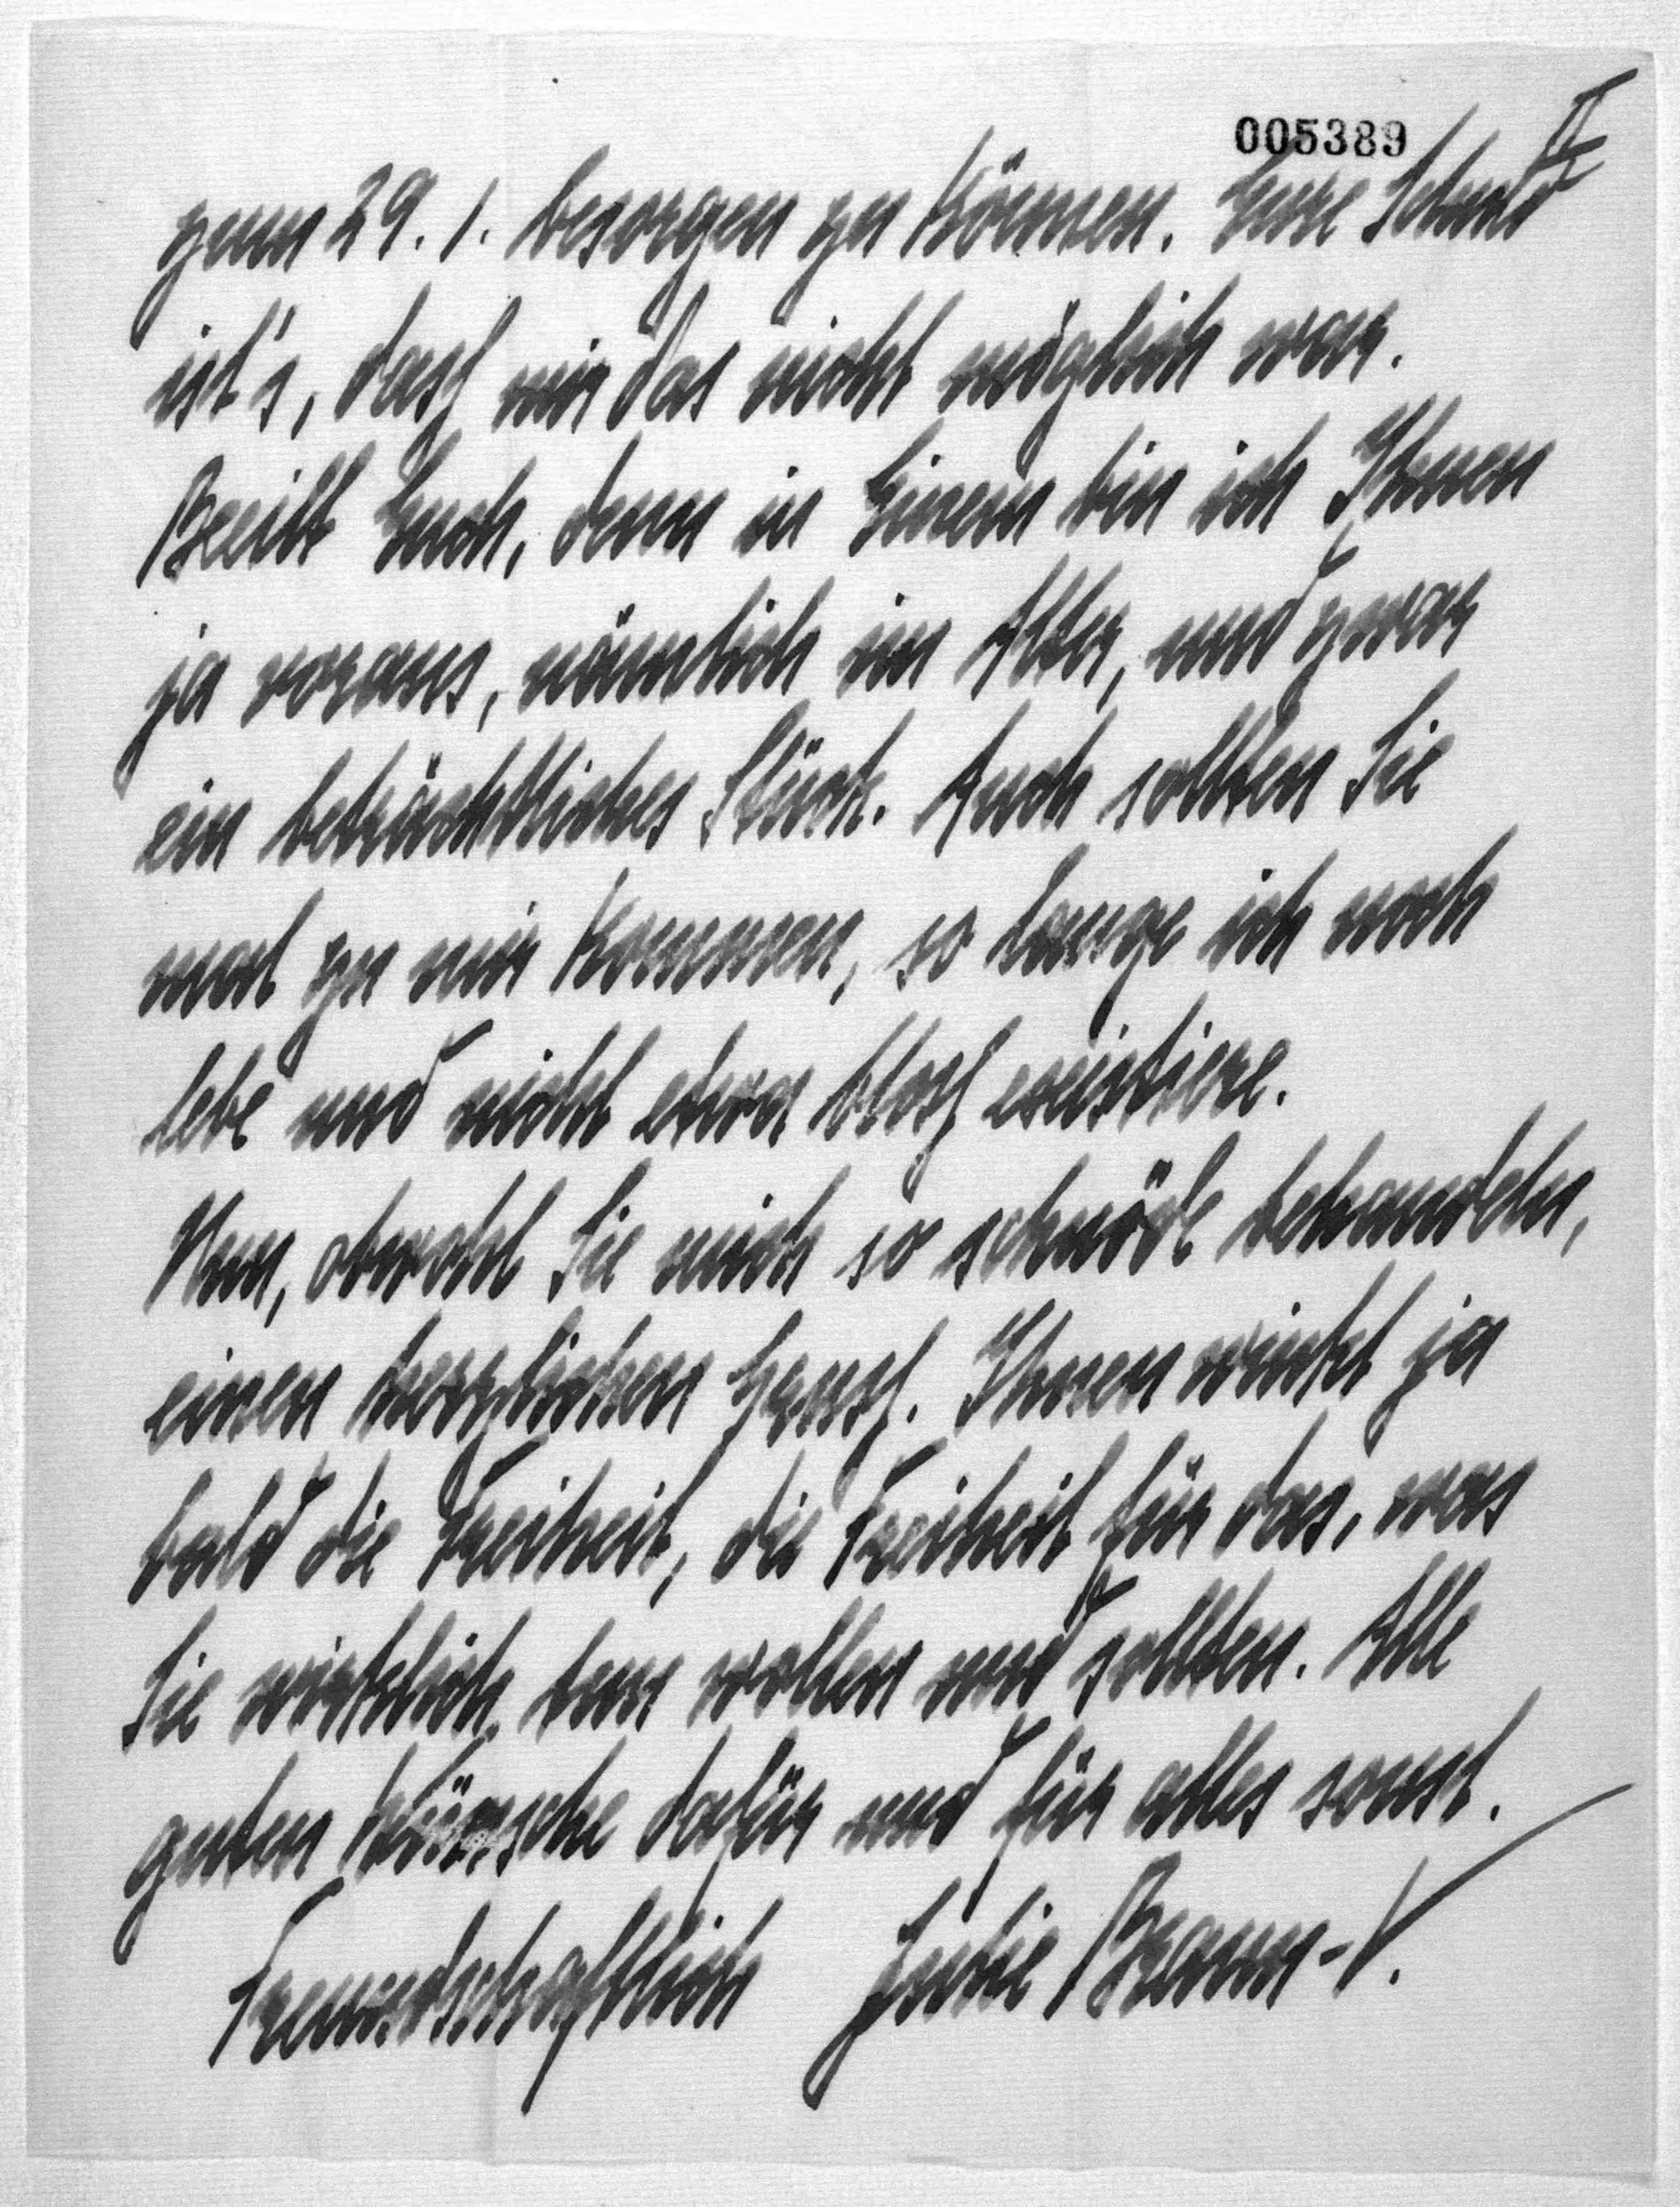 005389
II
zum 29. 1. besorgen zu können. Eure Schuld
ist's, dass mir das nicht möglich war.
Beeilt Euch, denn in Einem bin ich Ihnen
ja voraus, nämlich im Alter, und zwar
ein beträchtliches Stück. Auch sollten Sie
mal zu mir kommen, so lange ich noch
lebe und nicht etwa bloss existiere.
Nun, obwohl Sie mich so schnöde behandeln,
einen herzlichen Gruss. Ihnen winkt ja
bald die Freiheit, die Freiheit für das, was
Sie wirklich tun wollen und sollten. Alle
guten Wünsche dafür und für alles sonst.
Freundschaftlich Braun-V.